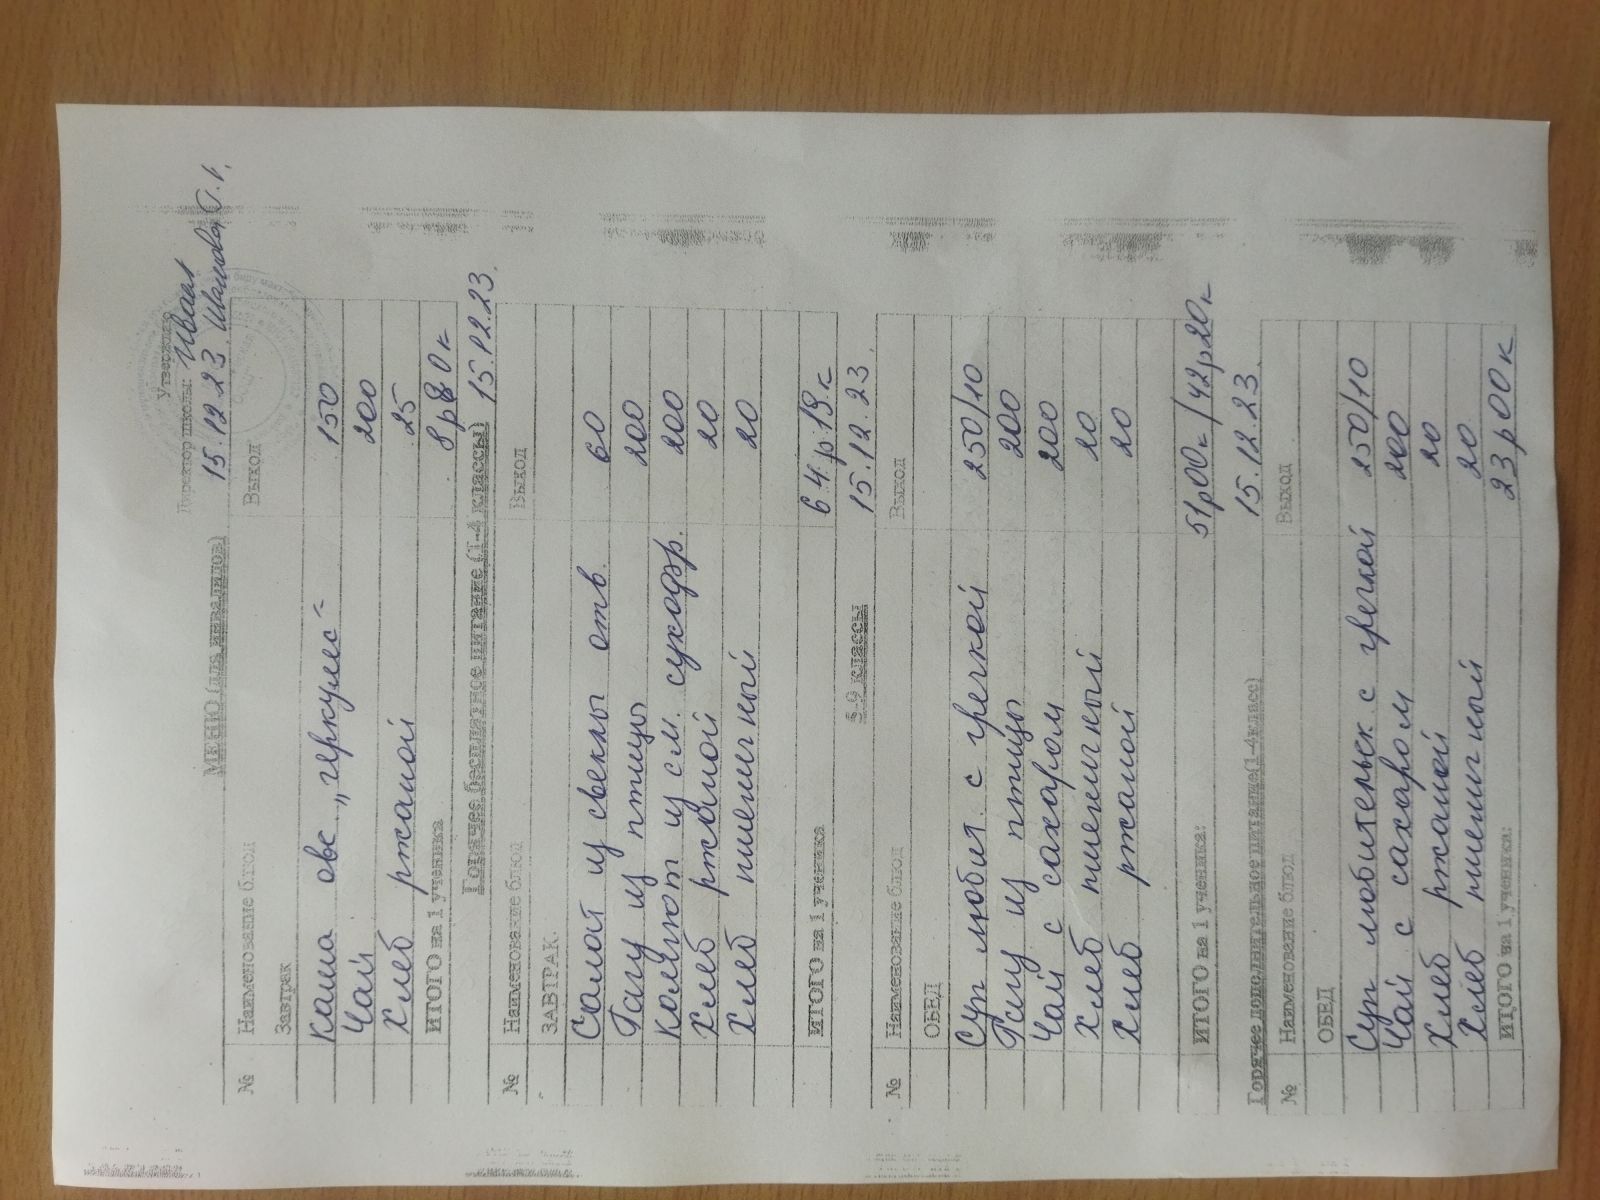 Утверждаю
Директор школы:
15.12.23
МЕНЮ (для инвалидов)
№ Наименование блюд Выход
Завтрак
Каша овс „геркулес" 150
Чай 200
Хлеб ржаной 25
ИТОГО на 1 ученика
Горячее бесплатное питание (1-4 классы) 15.12.23.
№ Наименование блюд Выход
ЗАВТРАК.
Салат из свеклы отв. 60
Рагу из птицы 200
Компот из см. сухофр. 200
Хлеб ржаной 20
Хлеб пшеничный 20
ИТОГО на 1 ученика 64 р 19 к
5-9 классы 15.12.23.
№ Наименование блюд Выход
ОБЕД
Суп любит. с гречкой 250/10
Рагу из птицы 200
Чай с сахаром 200
Хлеб пшеничный 20
Хлеб ржаной 20
ИТОГО на 1 ученика: 51р00к/42р20к
Горячее дополнительное питание(1-4класс) 15.12.23.
№ Наименование блюд Выход
ОБЕД
Суп любительск с гречкой 250/10
Чай с сахаром 200
Хлеб ржаной 20
Хлеб пшеничный 20
ИТОГО на 1 ученика: 23р00к